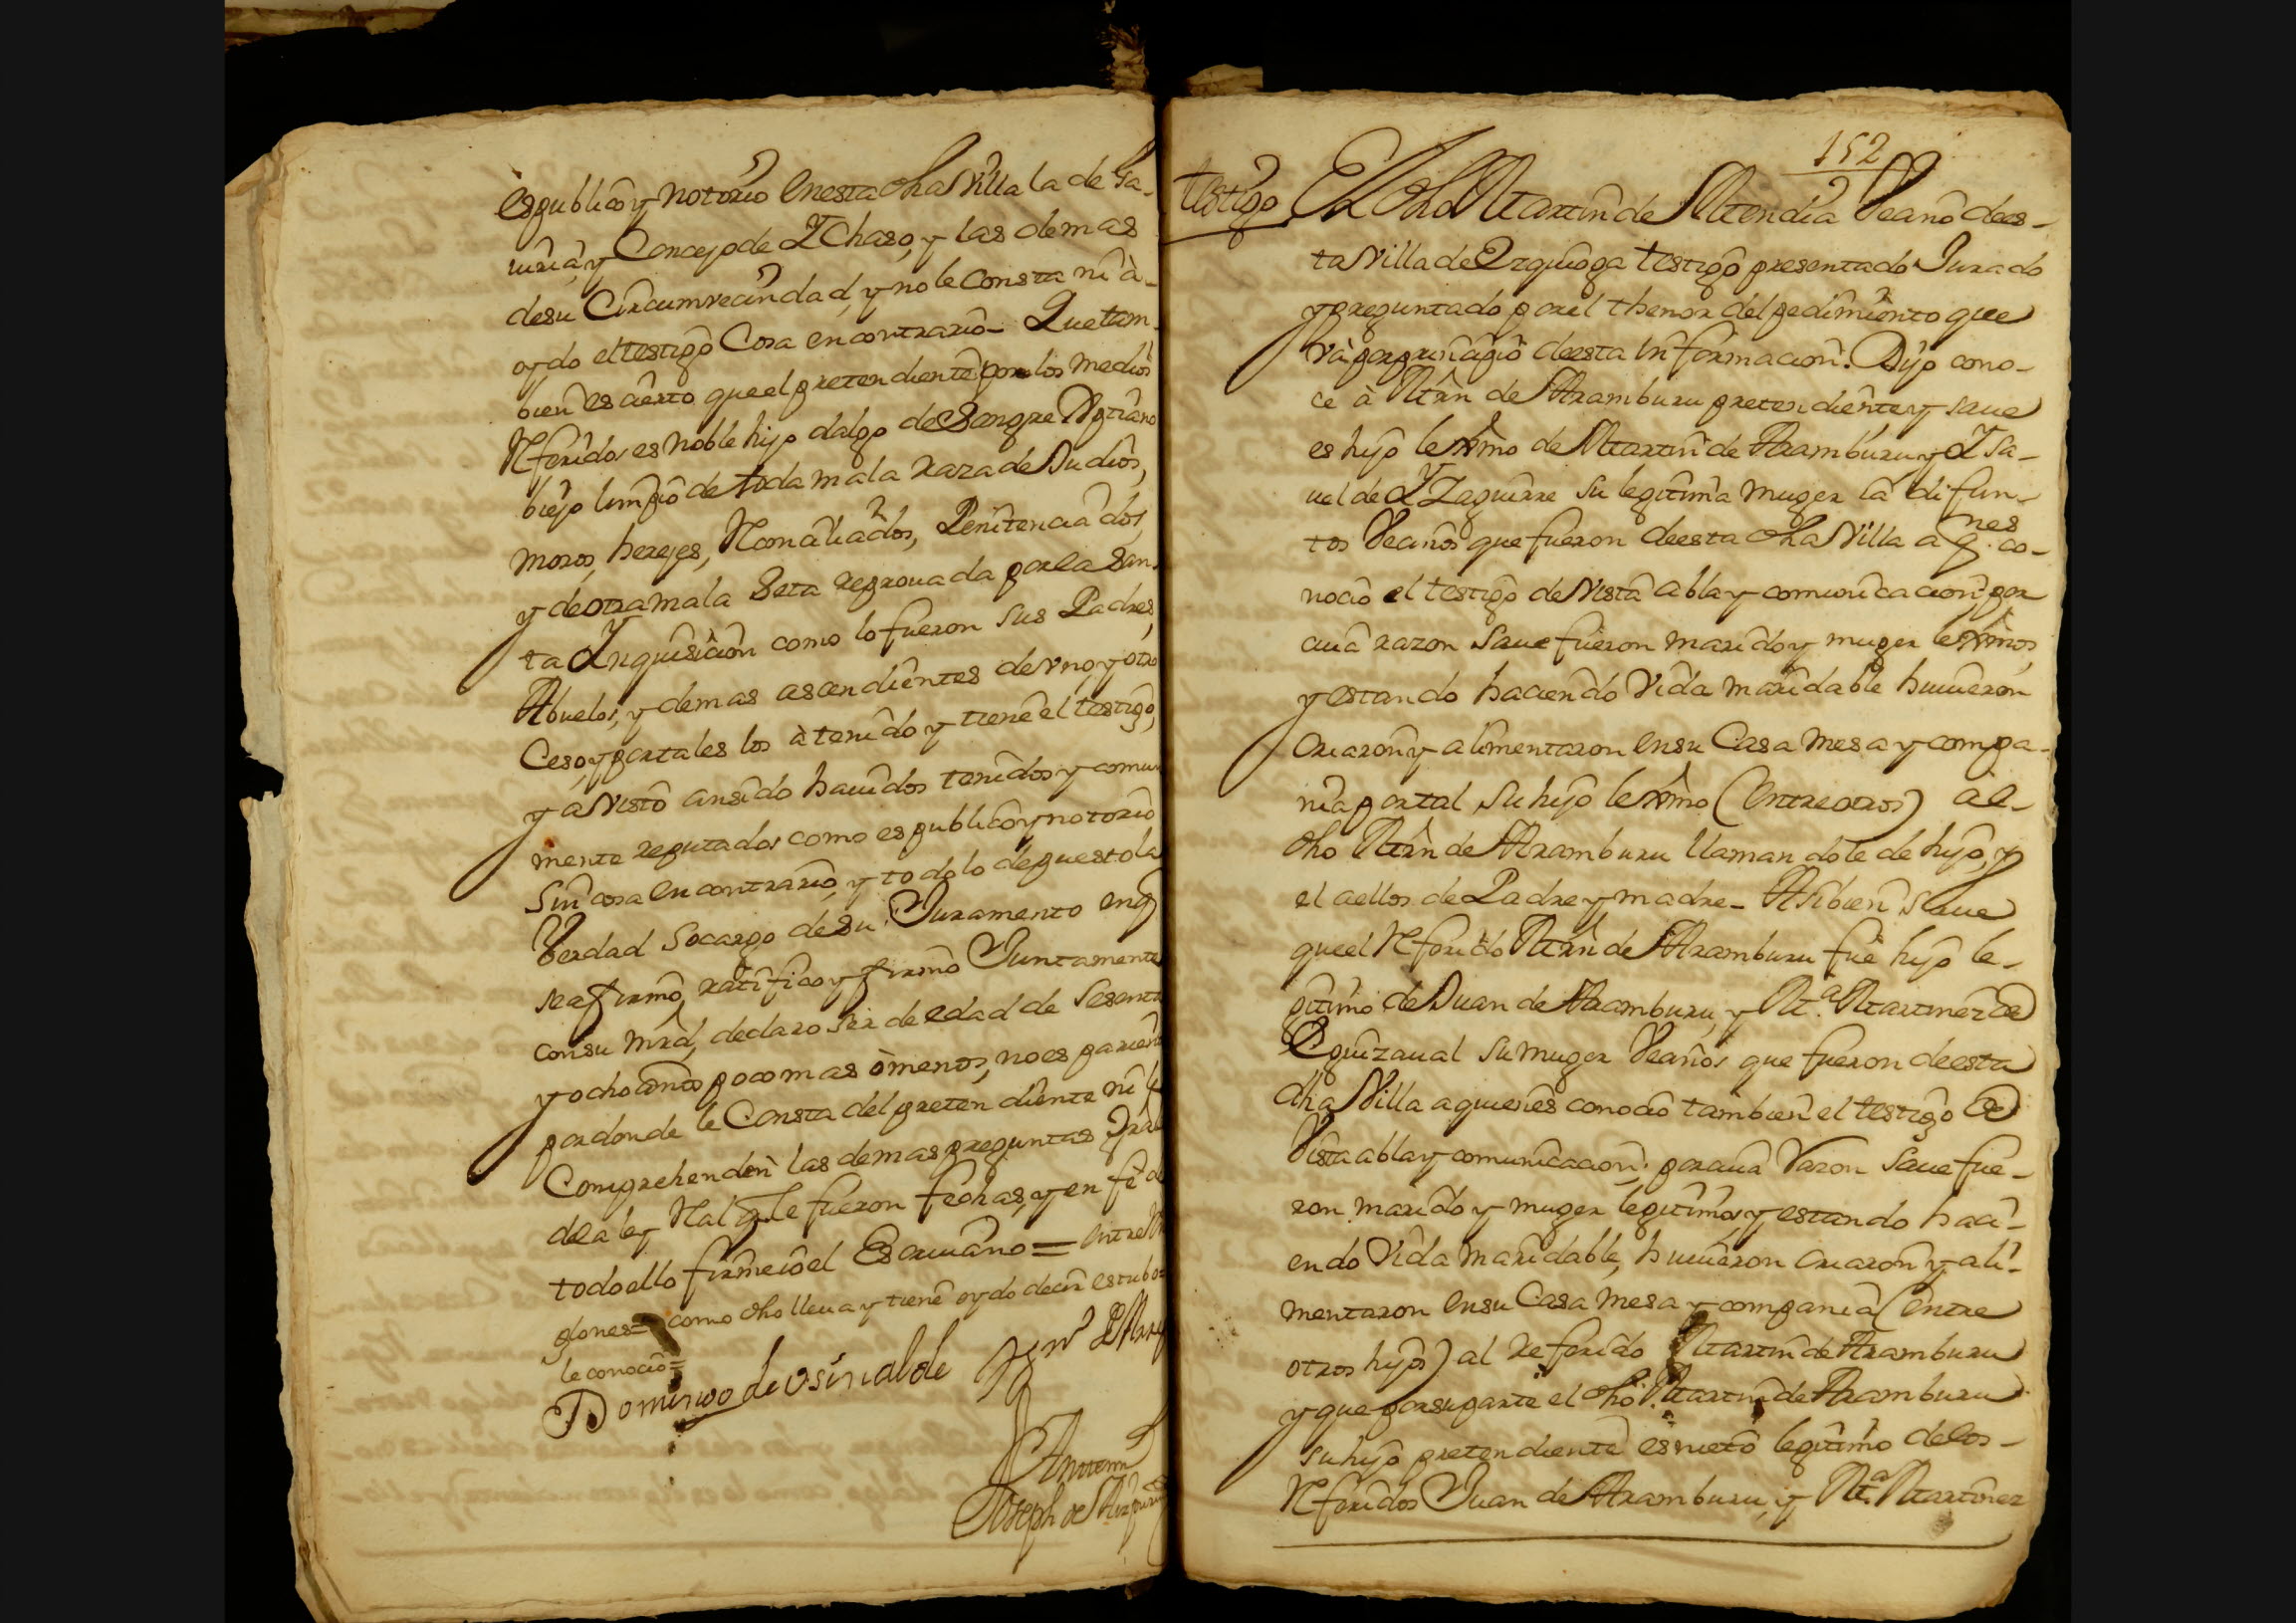 es publico y notorio en esta dha Villa la de Ga-
uiria, y Concejo de Ychaso, y las demas
de su Circumvecindad, y no le consta ni à
oydo el testigo Cosa en contrario- Que tam-
bien es cierto que el pretendiente por los medios
Referidos es noble hijo dalgo de Sangre Xptiano
biejo limpio de toda mala raza de Judios,
moros, herejes, Reconciliados, Penitenciados,
y de otra mala Seta reprouada por la San-
ta Ynquisicion como lo fueron sus Padres,
Abuelos, y demas ascendientes de vno, y otro
Ceso, y por tales los à tenido y tiene el testigo,
y a visto an sido hauidos tenidos y comun
mente reputados como es publico y notorio
Sin cosa en contrario, y todo lo depuesto la
Verdad so cargo de su Juramento en q
se afirmò, ratificò y firmò Juntamente
con su mrd, declaro ser de edad de Sesenta
y ocho años poco mas ò menos, no es parient
por donde le Consta del pretendiente ni l
Comprehenden las demas preguntas Grãl
de la ley Real q le fueron fechas, y en fè de
todo ello firmè io el Escriuano = entre Re
glones = como dho lleua y tiene oydo decir estubo =
le conociò =
Domingo de Vsinalde
Anttemi
Joseph de
152
testigo El dho Martin de Mendia Vecino de es-
ta Villa de Ezquioga testigo presentado Jurado
y preguntado por el thenor del pedimiento que
và por principio de esta Informacion. Dijo cono-
ce à Mrñ de Aramburu pretendiente y saue
es hijo lexmo de Martin de Aramburu y Ysa-
uel de Yzaguirre su legitima muger ia difun-
tos Vecinos que fueron de esta dha Villa a q.nes co-
nocio el testigo de vista abla y comunicacion, por
cuia razon saue fueron marido y muger lexmos,
y estando haciendo Vida maridable huuieron
criaron y alimentaron en su Casa mesa y compa-
nia por tal su hijo lexmo (entre otros) àl-
dho Mrñ de Aramburu llamandole de hijo, y
el a ellos de Padre y madre- Asi bien saue
que el Referido Mrñ de Aramburu fuè hijo le-
gitimo de Juan de Aramburu, y M.a Martinez de
Eguizaual su muger Vecinos que fueron de esta
dha Villa a quienes conociò tambien el testigo de
Vista abla y comunicacion, por cuia razon saue fue-
ron marido y muger legitimos, y estando haci-
endo Vida maridable, huuieron criaron y ali-
mentaron en su Casa mesa y compania (entre
otros hijos) al referido Martin de Aramburu
y que por su parte el dho Martin de Aramburu
su hijo pretendiente es nieto legitimo de los-
Referidos Juan de Aramburu, y M.a Martinez